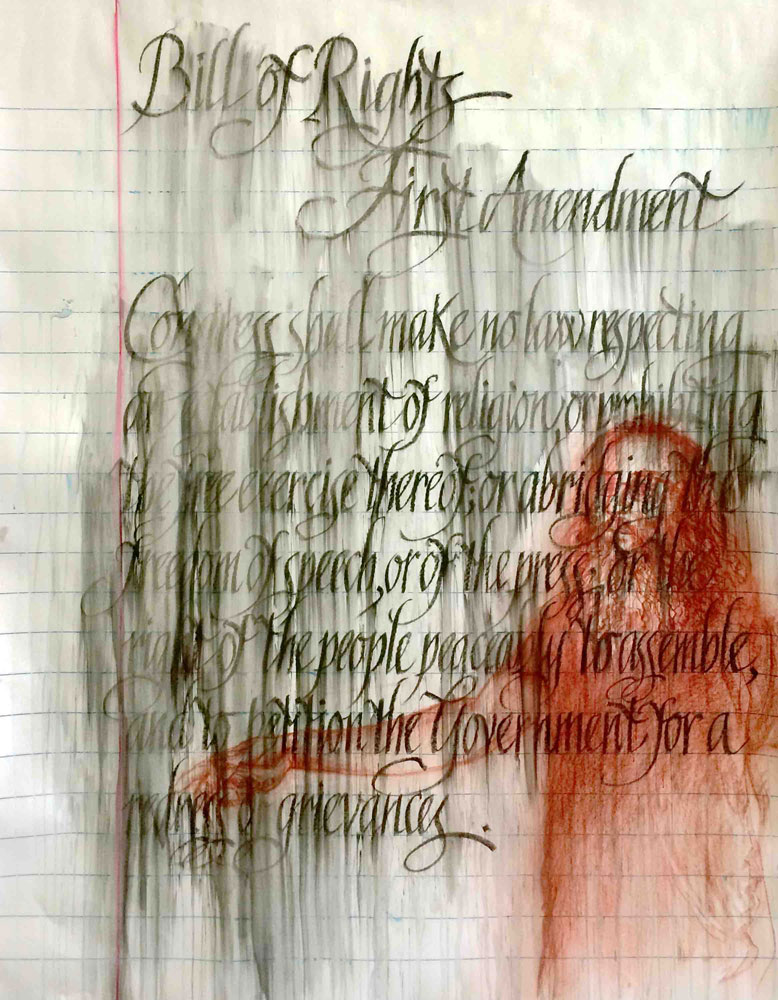 Bill of Rights
First Amendment
Congress shall make no law respecting
an establishment of religion, or prohibiting
the free exercise thereof; or abridging the
freedom of speech, or of the press; or the
right of the people peaceably to assemble,
and to petition the Government for a
redress of grievances.